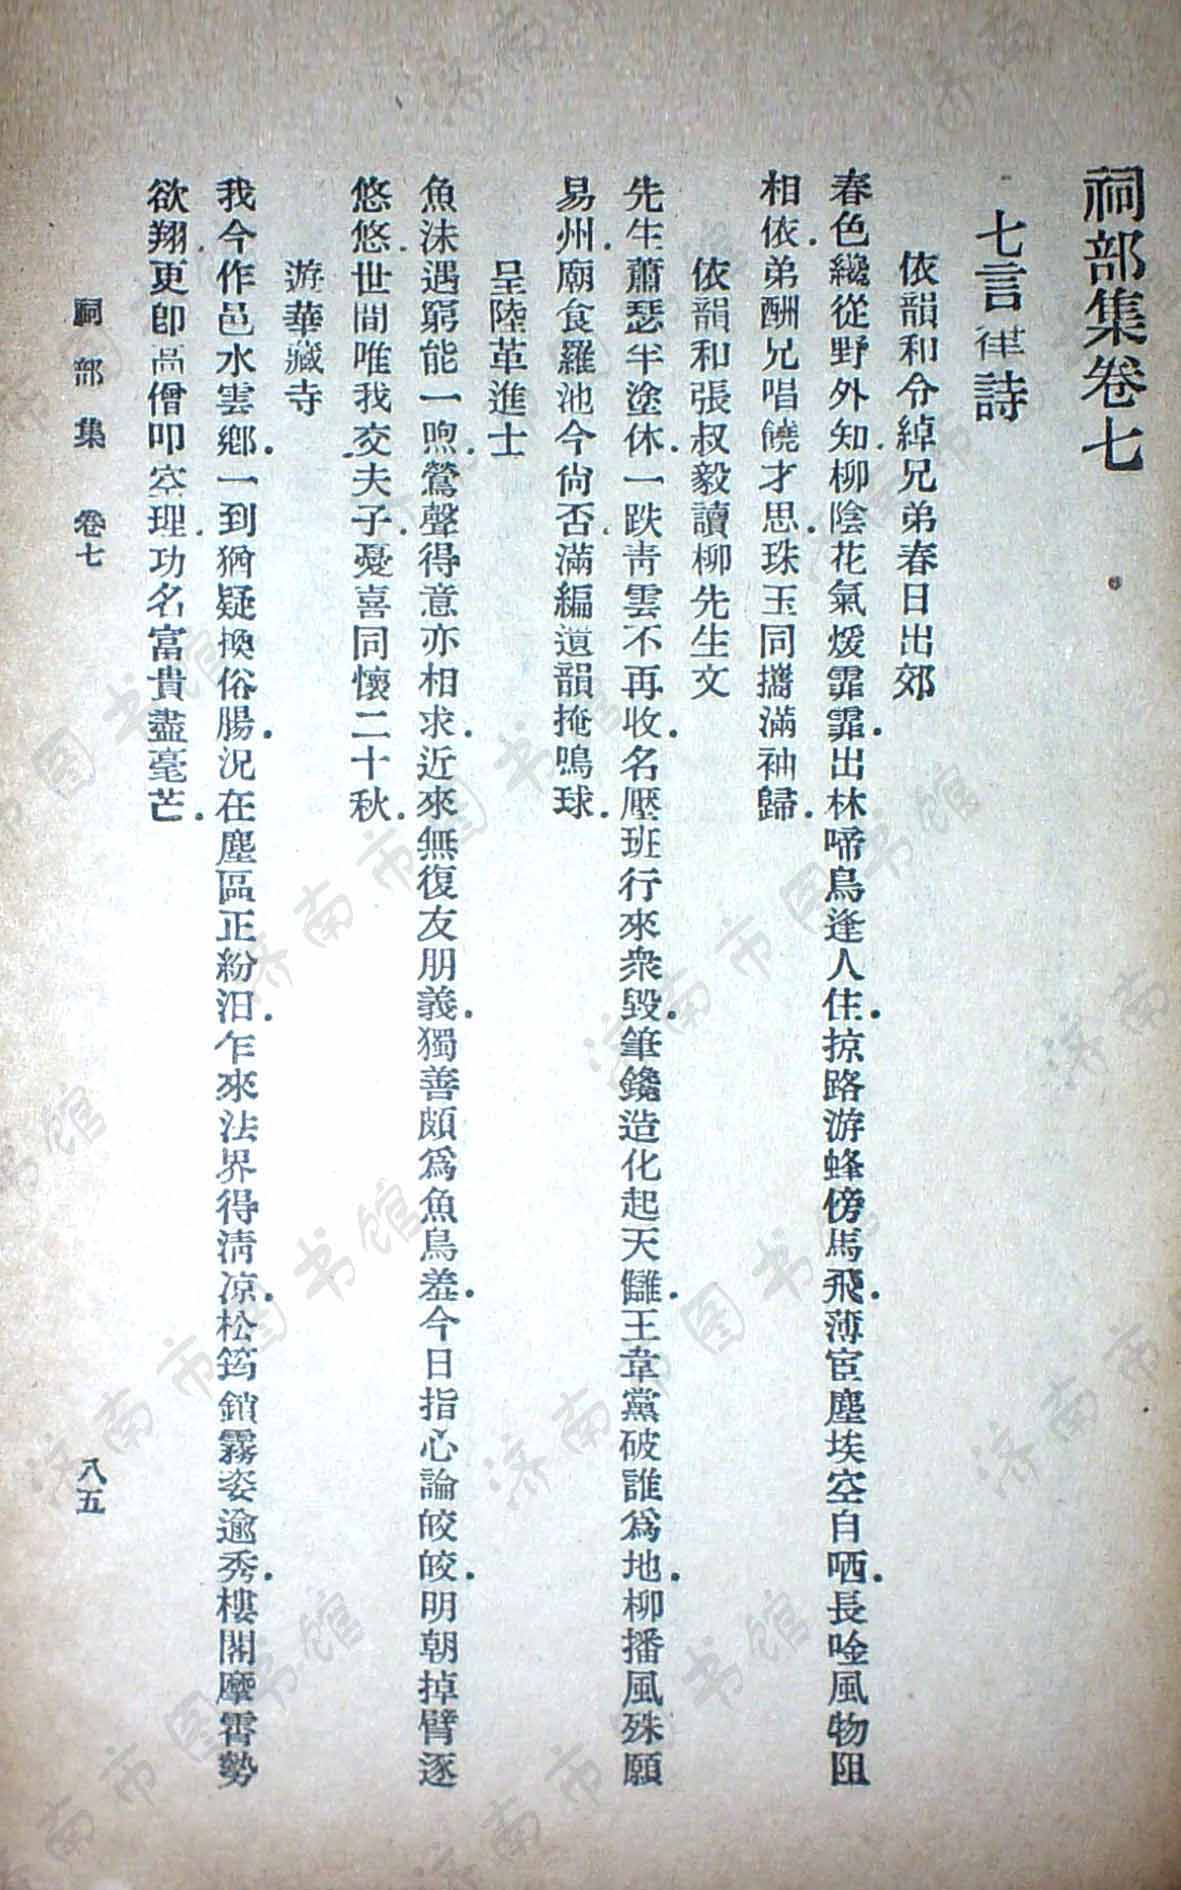 祠部集卷七
七言律詩
依韻和令綽兄弟春日出郊
春色纔從野外知柳陰花氣煖霏霏出林啼鳥逢人住掠路游蜂傍馬飛薄宦塵埃空自哂長唫風物阻
相依弟酬兄唱饒才思珠玉同攜滿袖歸
依韻和張叔毅讀柳先生文
先生蕭瑟半塗休一跌靑雲不再收名壓班行來衆毀筆鑱造化起天讎王韋黨破誰爲地柳播風殊願
易州廟食羅池今尙否滿編遺韻掩鳴球
呈陸革進士
魚沫遇窮能一喣鶯聲得意亦相求近來無復友朋義獨善頗爲魚鳥羞今日指心論皎皎明朝掉臂逐
悠悠世間唯我交夫子憂喜同懷二十秋
游華藏寺
我今作邑水雲鄕一到猶疑換俗腸況在塵區正紛汨乍來法界得淸凉松筠鎖霧姿逾秀樓閣摩霄勢
欲翔更卽高僧叩空理功名富貴盡毫芒
祠部集 卷七
八五
济南市图书馆